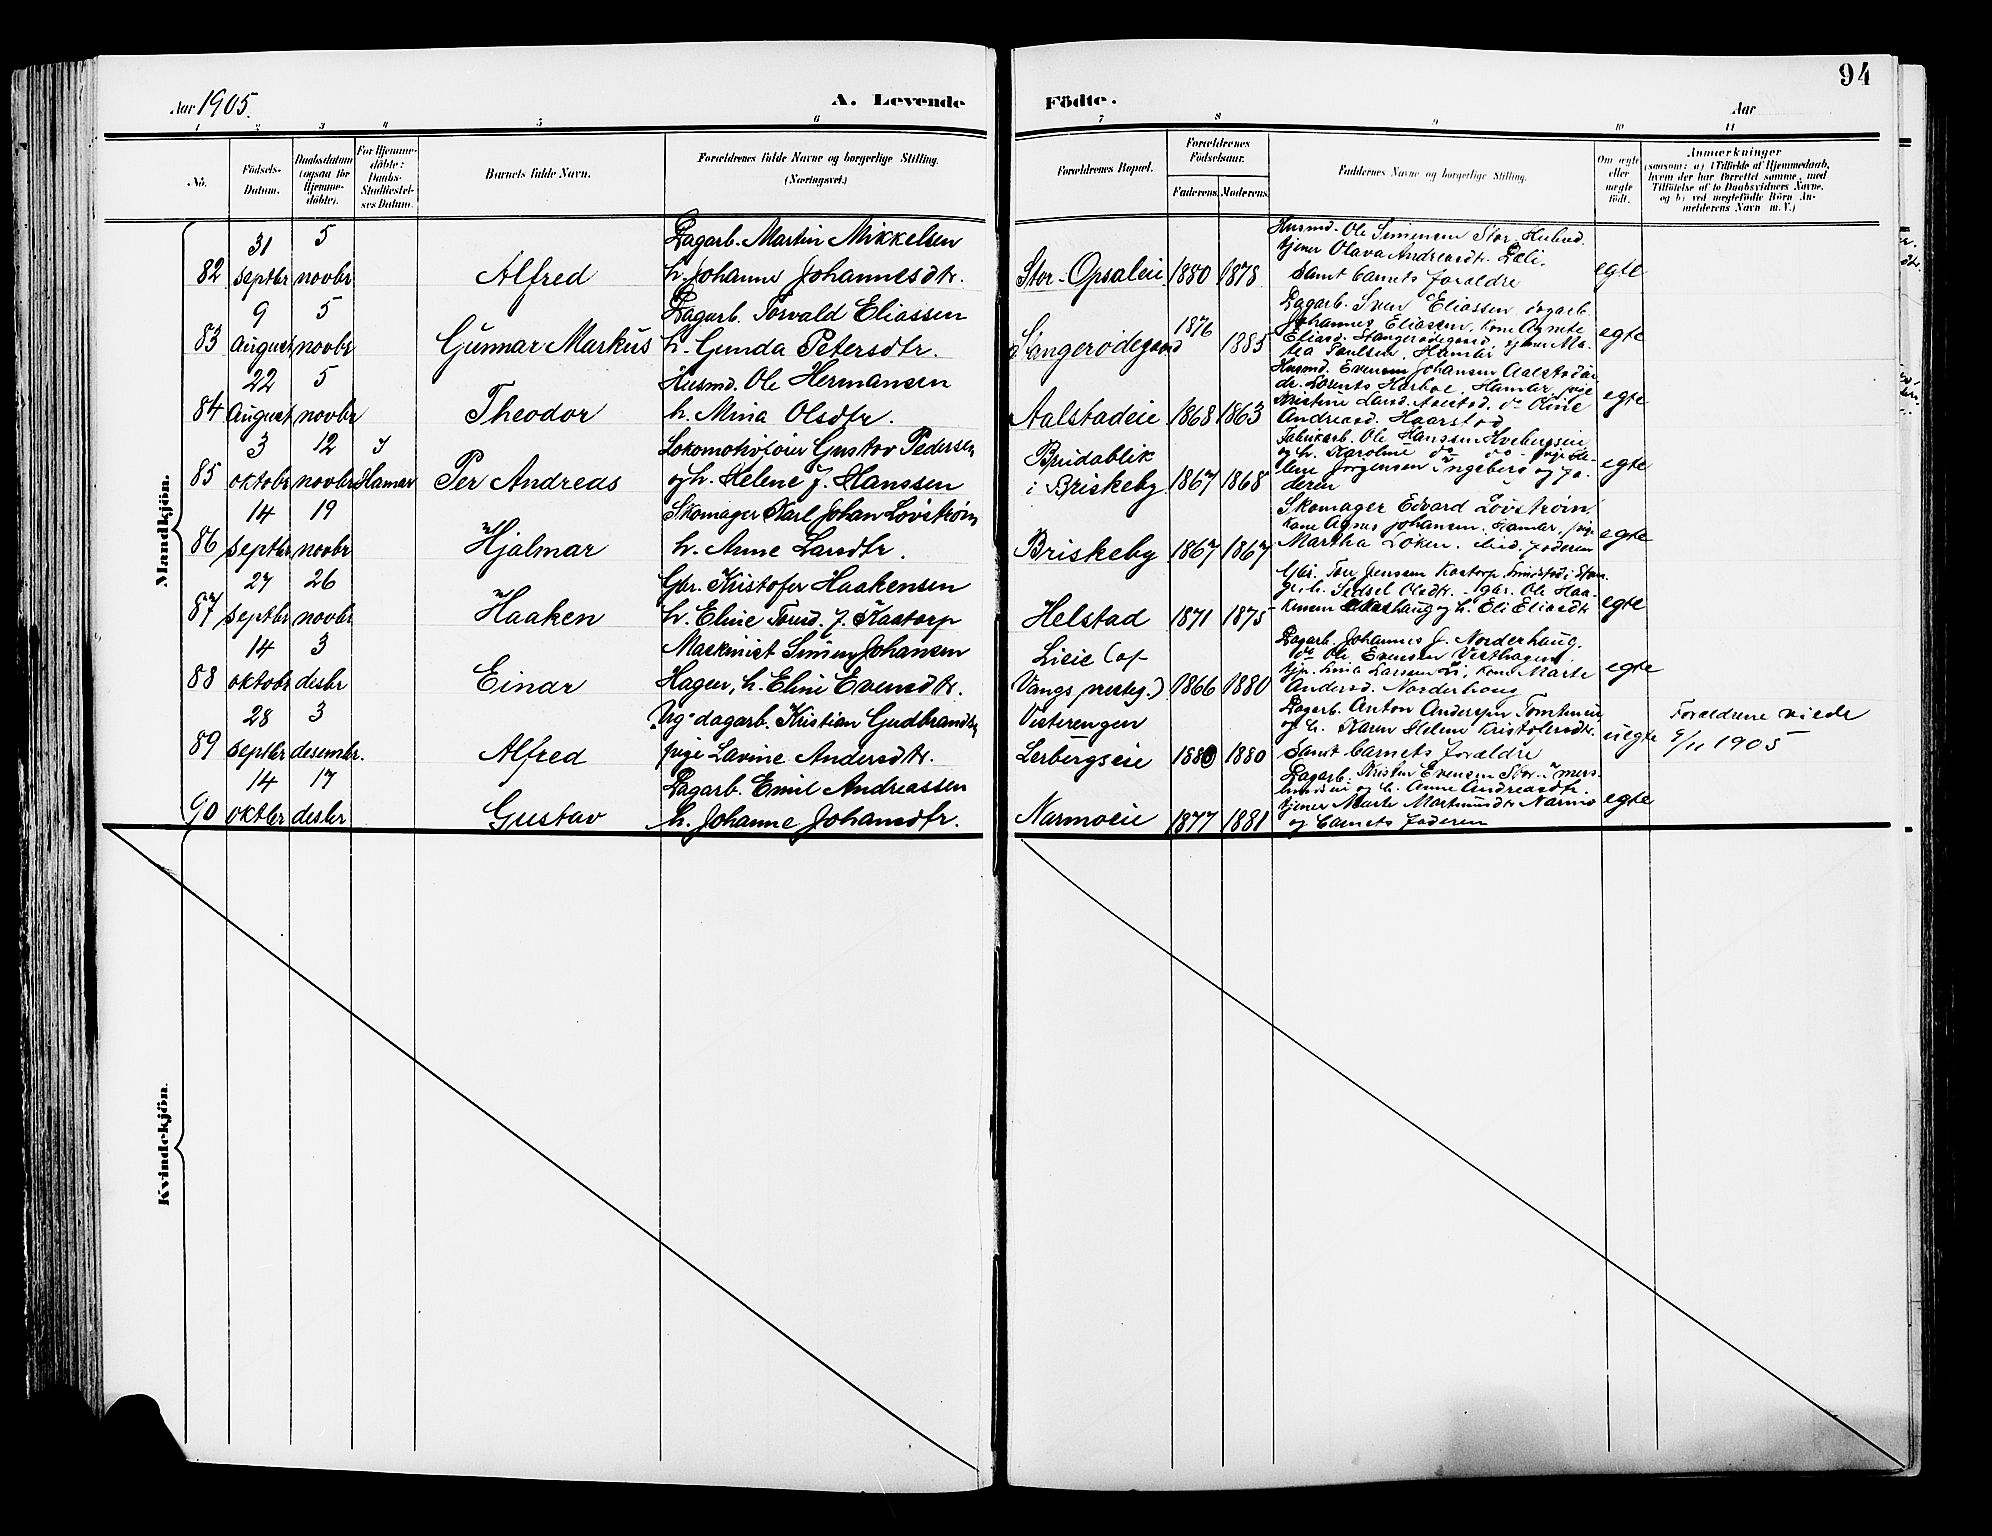 94
Aar 1905.
A. Levende Födte.
Aar
1 2 3 4 5 6 7 8 9 10 11
No.
Födsels-Datum.
Daabsdatum (ogsaa for Hjemmedöbte).
For Hjemmedöbte: Daabs-Stadfæstelses Datum.
Barnets fulde Navn.
Forældrenes fulde Navne og borgerlige Stilling. (Næringsvei.)
Forældrenes Bopæl.
Forældrenes Födselsaar.
Faderens. Moderens.
Faddernes Navne og borgerlige Stilling.
Om ægte eller uægte födt.
Anmærkninger
(saasom: a) i Tilfælde af Hjemmedaab,
hvem der har forrettet samme, med
Tilföielse af to Daabsvidners Navne,
og b) ved uægtefödte Börn Anmelderens Navn m. V.)
Mandkjön.
82 31 septbr 5 novbr Alfred
Dagarb. Martin Mikkelsen
h. Johanne Johannesdtr.
Stor-Opsaleie 1880 1878
Husmd. Ole Simensen Stor-
tjener Olava Andreasdtr.
samt barnets forældre
egte
83 9 August 5 novbr Gunnar Markus
Dagarb. Torvald Eliassen
h. Gunda Petersdtr.
1876 1885
Dagarb. Sven Eliassen dagarb.
Johannes Eliassen, kone Agnete
Eliasd. Stangerödegaard, tjener
Paulsen, Hamar
egte
84 22 August 5 novbr Theodor
Husmd. Ole Hermansen
h. Mina Olsdtr.
Aalstadeie 1868 1863
Husmd. Evensen Johansen
Lorents Harboe, Hamar, pige
Kristine Larsd. Aalstad, do Oline
Andreasd. Haarstad
egte
85 3 oktobr 12 novbr I Hamar Per Andreas
Lokomotivfører Gustav Pedersen
og h. Helene J. Hanssen
Breidablik
i Briskeby 1867 1868
Fabrikarb. Ole Hanssen
og h. Karoline do do - pige
Jørgensen Ingeberg og faderen
egte
86 14 septbr 19 novbr Hjalmar
Skomager Karl Johan Lövström
h. Anne Larsdtr.
Briskeby 1867 1867
Skomager Edvard Lövström,
kone Agnes Johansen, Hamar, pige
Martha Löken. ibid. faderen
egte
87 27 septbr 26 novbr Haaken
Gbr. Kristofer Haakensen
h. Eline Torsd. f. Kastorp
Helstad 1871 1875
Gbr. Tore Jensen Kastorp,
h. Sidsel Olsdtr. - gbr. Ole Haakensen
og h. Eli Eliasdtr
egte
88 14 oktobr 3 desbr Einar
Maskinist Simen Johansen
Hagen, h. Eline Evensdtr.
Lieie (af
Vangs presteg.) 1866 1880
Dagarb. Johannes J. Norderhaug.
do Ole Evensen Vesthagen,
Larsen Li, kone Marte
Andersd. Norderhaug
egte
89 28 septbr 3 desembr. Alfred
Ug. dagarb. Kristian Gudbrands.
pige Lavine Andersdtr.
Vesterengen
Lerbergseie 1880 1880
Dagarb. Anton Andersen
og h. Karen Helene Kristofersdtr.
samt barnets forældre
uegte
Forældrene viede
9/11 1905
90 14 oktbr 17 desbr Gustav
Dagarb. Emil Andreassen
h. Johanne Johansdtr.
Narmoeie 1877 1881
Dagarb. Kristen Evensen Stor-
og h. Anne Andreasdtr.
tjener Marte Martinusdtr Narmo
og barnets faderen
egte
Kvindekjön.